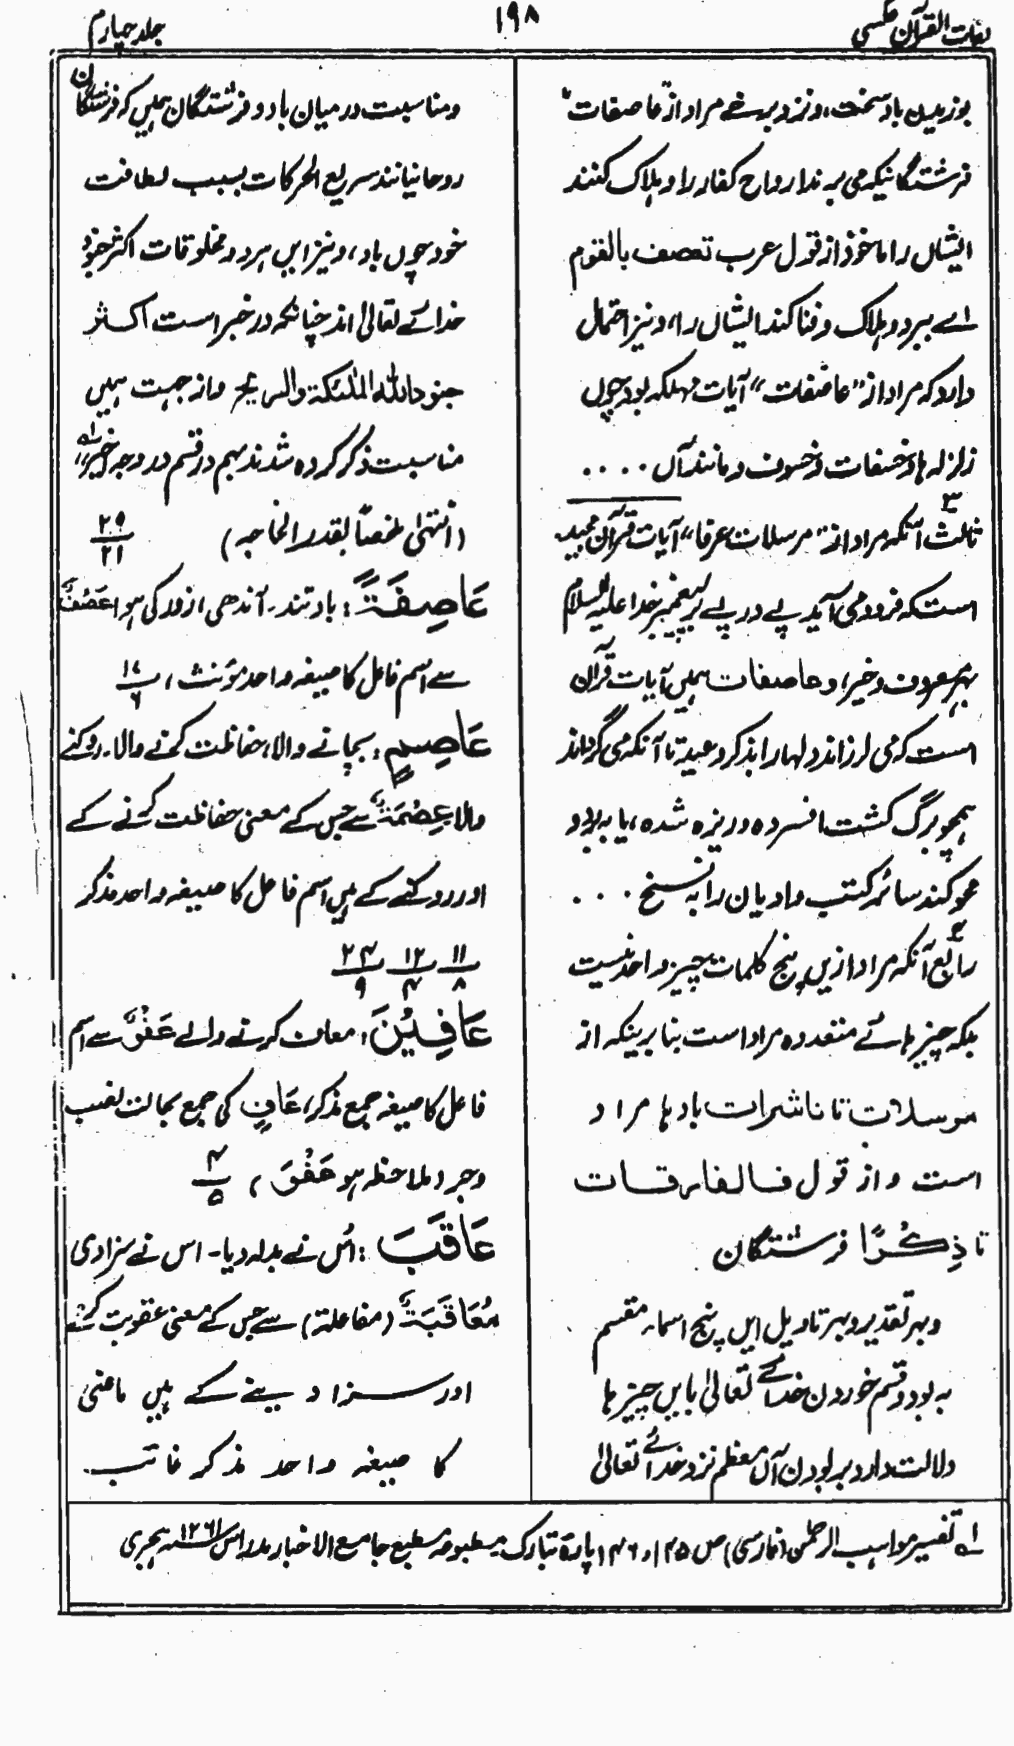 لغات القرآن عکسی
۱۹۸
جلد چہارم
بوزیدن باد سخت، و نزد برخے مراد از "عاصفات"
فرشتگانیکہ می برند ارواح کفار را و ہلاک کنند
ایشاں را ماخوذ از قول عرب تعصف بالقوم
اے ببرد و ہلاک و فنا کند ایشاں را، و نیز احتمال
دارد کہ مراد از "عاصفات" آیات مہلکہ بود چوں
زلزلہ ہا و خسفات و خسوف و مانند آں ....
ثالث آنکہ مراد از "مرسلات عرفا" آیات قرآن مجید
است کہ فرود می آید پے در پے بر پیغمبر خدا علیہ السلام
بہر معروف و خیر، و عاصفات ہمیں آیات قرآن
است کہ می لرزاند دلہا را بذکر وعید تا آنکہ می گرداند
ہمچو برگ کشت افسردہ و ریزہ شدہ، یا بہ بود
محو کند سائر کتب و ادیان را بہ نسخ ...
رابع آنکہ مراد ازیں پنج کلمات چیز واحد نیست
بلکہ چیز ہائے متعددہ مراد است بنا برینکہ از
مرسلات تا ناشرات باد ہا مراد
است و از قول فالفارقات
تا ذِکْرًا فرشتگان
و بہر تقدیر و بہر تاویل ایں پنج اسماء مقسم
بہ بود و قسم خوردن خدائے تعالیٰ بایں چیز ہا
دلالت دارد بر بودن آں معظم نزد خدائے تعالیٰ
و مناسبت درمیان باد و فرشتگان ہمیں کہ فرشتگان
روحانیانند سریع الحرکات بسبب لطافت
خود چوں باد، و نیز ایں ہر دو مخلوقات اکثر جنود
خدائے تعالیٰ اند چنانکہ در خبر است اکثر
جنود اللہ الملئکة والریح و از جہت ہمیں
مناسبت ذکر کردہ شدند بہم در قسم در دو جہ خیر" لہ
(انتہی ملخصاً بقدر الحاجہ) ۲۹/۲۱
عَاصِفَةً: باد تند۔ آندھی ازور کی ہوا عَصْفٌ
سے اسم فاعل کا صیغہ واحد مؤنث، ۱۷/۶
عَاصِمٍ: بچانے والا، حفاظت کرنے والا۔ روکنے
والا عِصْمَةٌ سے جس کے معنی حفاظت کرنے کے
اور روکنے کے ہیں اسم فاعل کا صیغہ واحد مذکر
۱۱/۸ ۱۲/۴ ۲۴/۹
عَافِیْنَ: معاف کرنے والے عَفْوٌ سے اسم
فاعل کا صیغہ جمع مذکر، عَافٍ کی جمع بحالت نصب
وجر، ملاحظہ ہو عَفْوَ، ۴/۵
عَاقَبَ: اُس نے بدلہ دیا۔ اس نے سزا دی
مُعَاقَبَةٌ (مفاعلة) سے جس کے معنی عقوبت کرنے
اور سزا دینے کے ہیں ماضی
کا صیغہ واحد مذکر غائب۔
لہ تفسیر مواہب الرحمٰن (فارسی) ص ۱۴۵ و ۱۴۶ پارۂ تبارک مطبوعہ مطبع جامع الاخبار مدراس ۱۲۶۱ سنہ ہجری